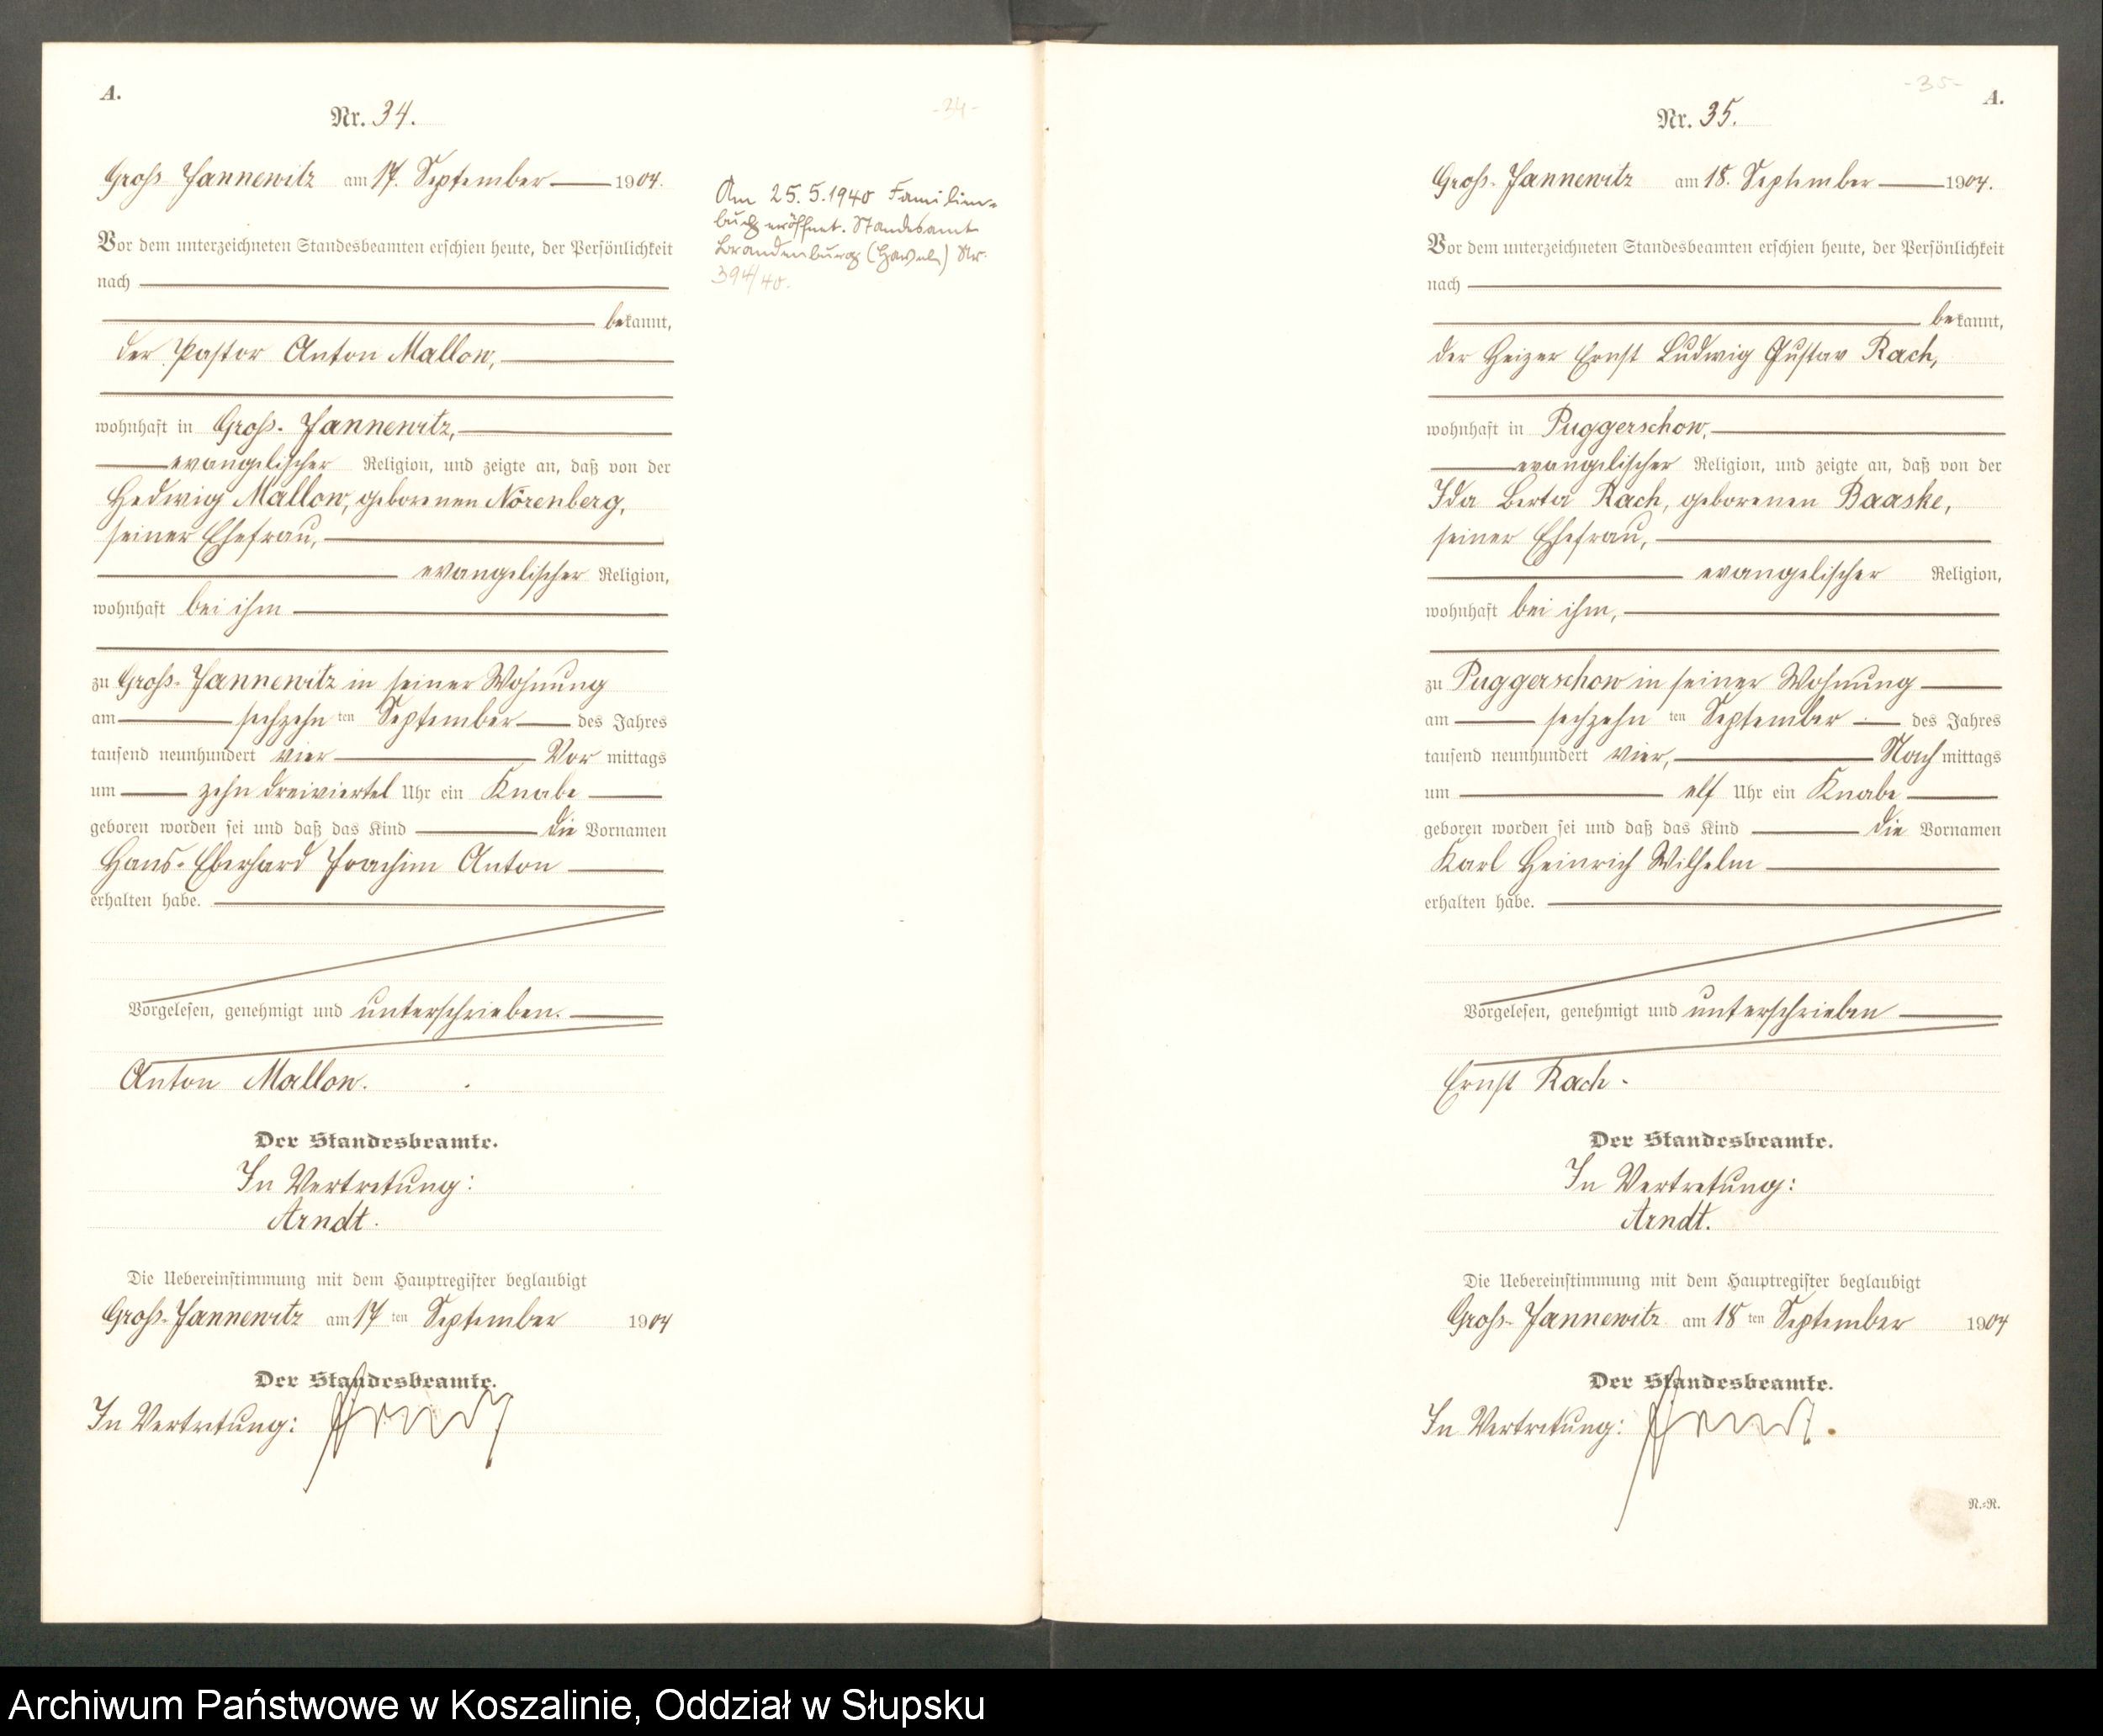 A.
Nr. 34.
-34-
Groß Jannewitz am 17. September 1904.
Vor dem unterzeichneten Standesbeamten erschien heute, der Persönlichkeit
nach
bekannt,
der Pastor Anton Mallow,
wohnhaft in Groß-Jannewitz,
evangelischer Religion, und zeigte an, daß von der
Hedwig Mallow, geborenen Nörenberg,
seiner Ehefrau,
evangelischer Religion,
wohnhaft bei ihm
zu Groß-Jannewitz in seiner Wohnung
am sechzehn ten September des Jahres
tausend neunhundert vier Vor mittags
um zehn dreiviertel Uhr ein Knabe
geboren worden sei und daß das Kind die Vornamen
Hans-Eberhard Joachim Anton
erhalten habe.
Vorgelesen, genehmigt und unterschrieben.
Anton Mallow.
Der Standesbeamte.
In Vertretung:
Arndt.
Die Uebereinstimmung mit dem Hauptregister beglaubigt
Groß-Jannewitz am 17 ten September 1904
Der Standesbeamte.
In Vertretung: Arndt
Am 25.5.1940 Familien-
buch eröffnet. Standesamt
Brandenburg (Havel) Nr.
394/40.
-35-
A.
Nr. 35.
Groß-Jannewitz am 18. September 1904.
Vor dem unterzeichneten Standesbeamten erschien heute, der Persönlichkeit
nach
bekannt,
der Heizer Ernst Ludwig Gustav Rach,
wohnhaft in Puggerschow,
evangelischer Religion, und zeigte an, daß von der
Ida Berta Rach, geborenen Baaske,
seiner Ehefrau,
evangelischer Religion,
wohnhaft bei ihm,
zu Puggerschow in seiner Wohnung
am sechzehn ten September des Jahres
tausend neunhundert vier, Nach mittags
um elf Uhr ein Knabe
geboren worden sei und daß das Kind die Vornamen
Karl Heinrich Wilhelm
erhalten habe.
Vorgelesen, genehmigt und unterschrieben
Ernst Rach.
Der Standesbeamte.
In Vertretung:
Arndt.
Die Uebereinstimmung mit dem Hauptregister beglaubigt
Groß-Jannewitz am 18 ten September 1904
Der Standesbeamte.
In Vertretung: Arndt.
N.-R.
Archiwum Państwowe w Koszalinie, Oddział w Słupsku